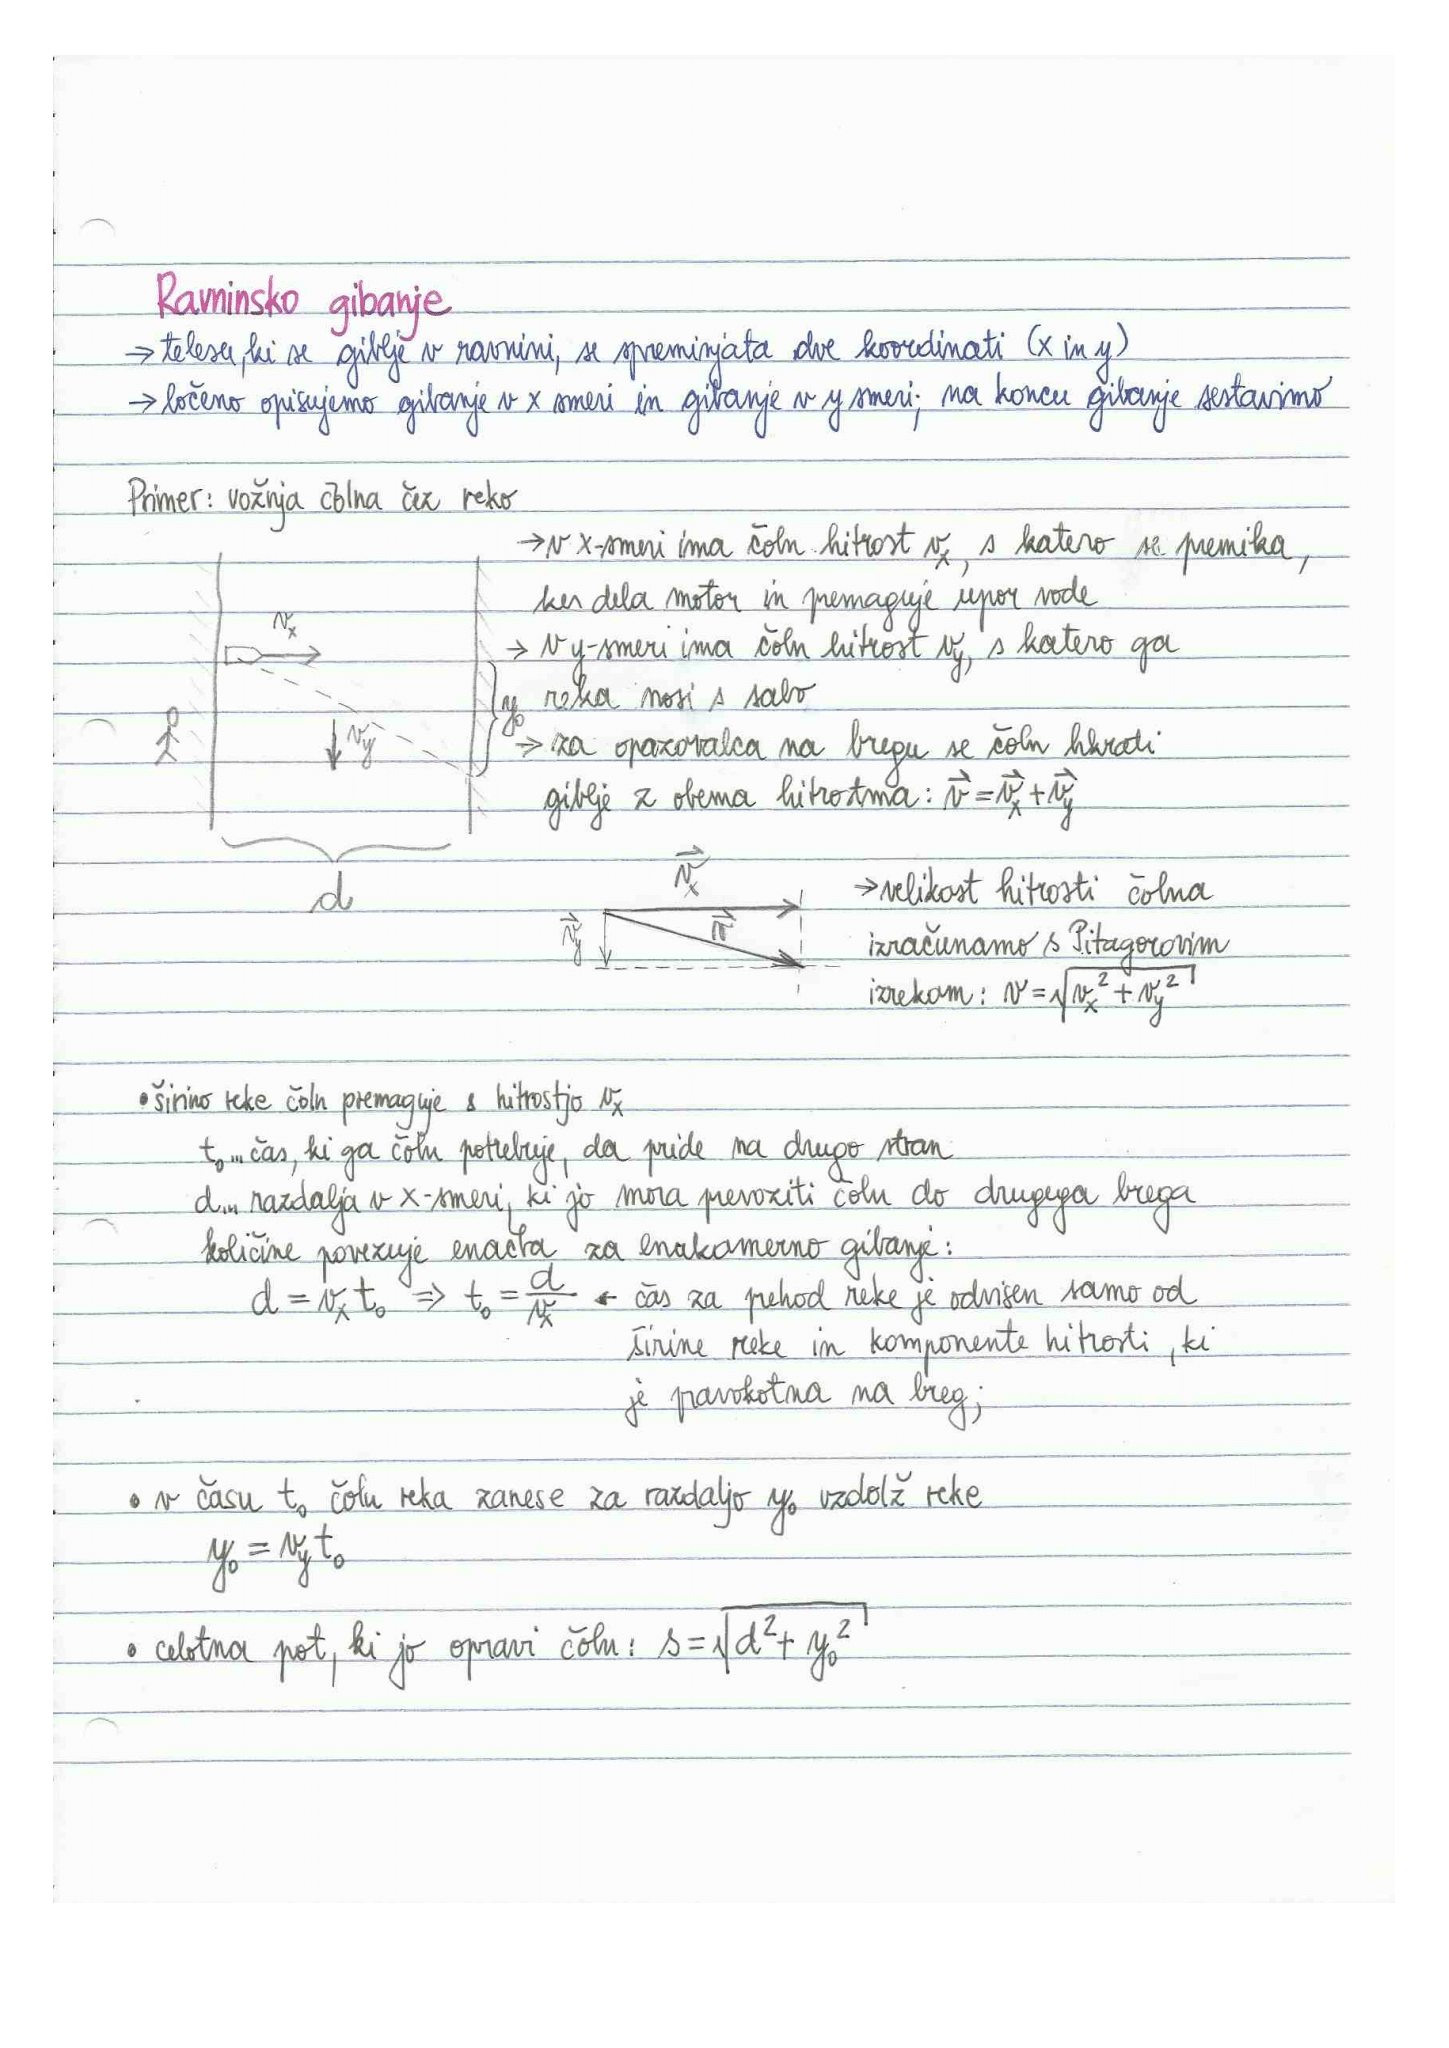 Ravninsko gibanje
→ telesu, ki se giblje v ravnini, se spreminjata dve koordinati (x in y)
→ ločeno opisujemo gibanje v x smeri in gibanje v y smeri; na koncu gibanje sestavimo
Primer: vožnja čolna čez reko
→ v x-smeri ima čoln hitrost vₓ, s katero se premika,
ker dela motor in premaguje upor vode
→ v y-smeri ima čoln hitrost v_y, s katero ga
reka nosi s sabo
→ za opazovalca na bregu se čoln hkrati
giblje z obema hitrostma: v⃗ = v⃗ₓ + v⃗_y
vₓ
v_y
y₀
d
v⃗ₓ
v⃗_y
v⃗
→ velikost hitrosti čolna
izračunamo s Pitagorovim
izrekom: v = √(vₓ² + v_y²)
• širino reke čoln premaguje s hitrostjo vₓ
t₀... čas, ki ga čoln potrebuje, da pride na drugo stran
d... razdalja v x-smeri, ki jo mora prevoziti čoln do drugega brega
količine povezuje enačba za enakomerno gibanje:
d = vₓ t₀ ⇒ t₀ = d/vₓ ← čas za prehod reke je odvisen samo od
širine reke in komponente hitrosti, ki
je pravokotna na breg;
• v času t₀ čoln reka zanese za razdaljo y₀ vzdolž reke
y₀ = v_y t₀
• celotna pot, ki jo opravi čoln: s = √(d² + y₀²)